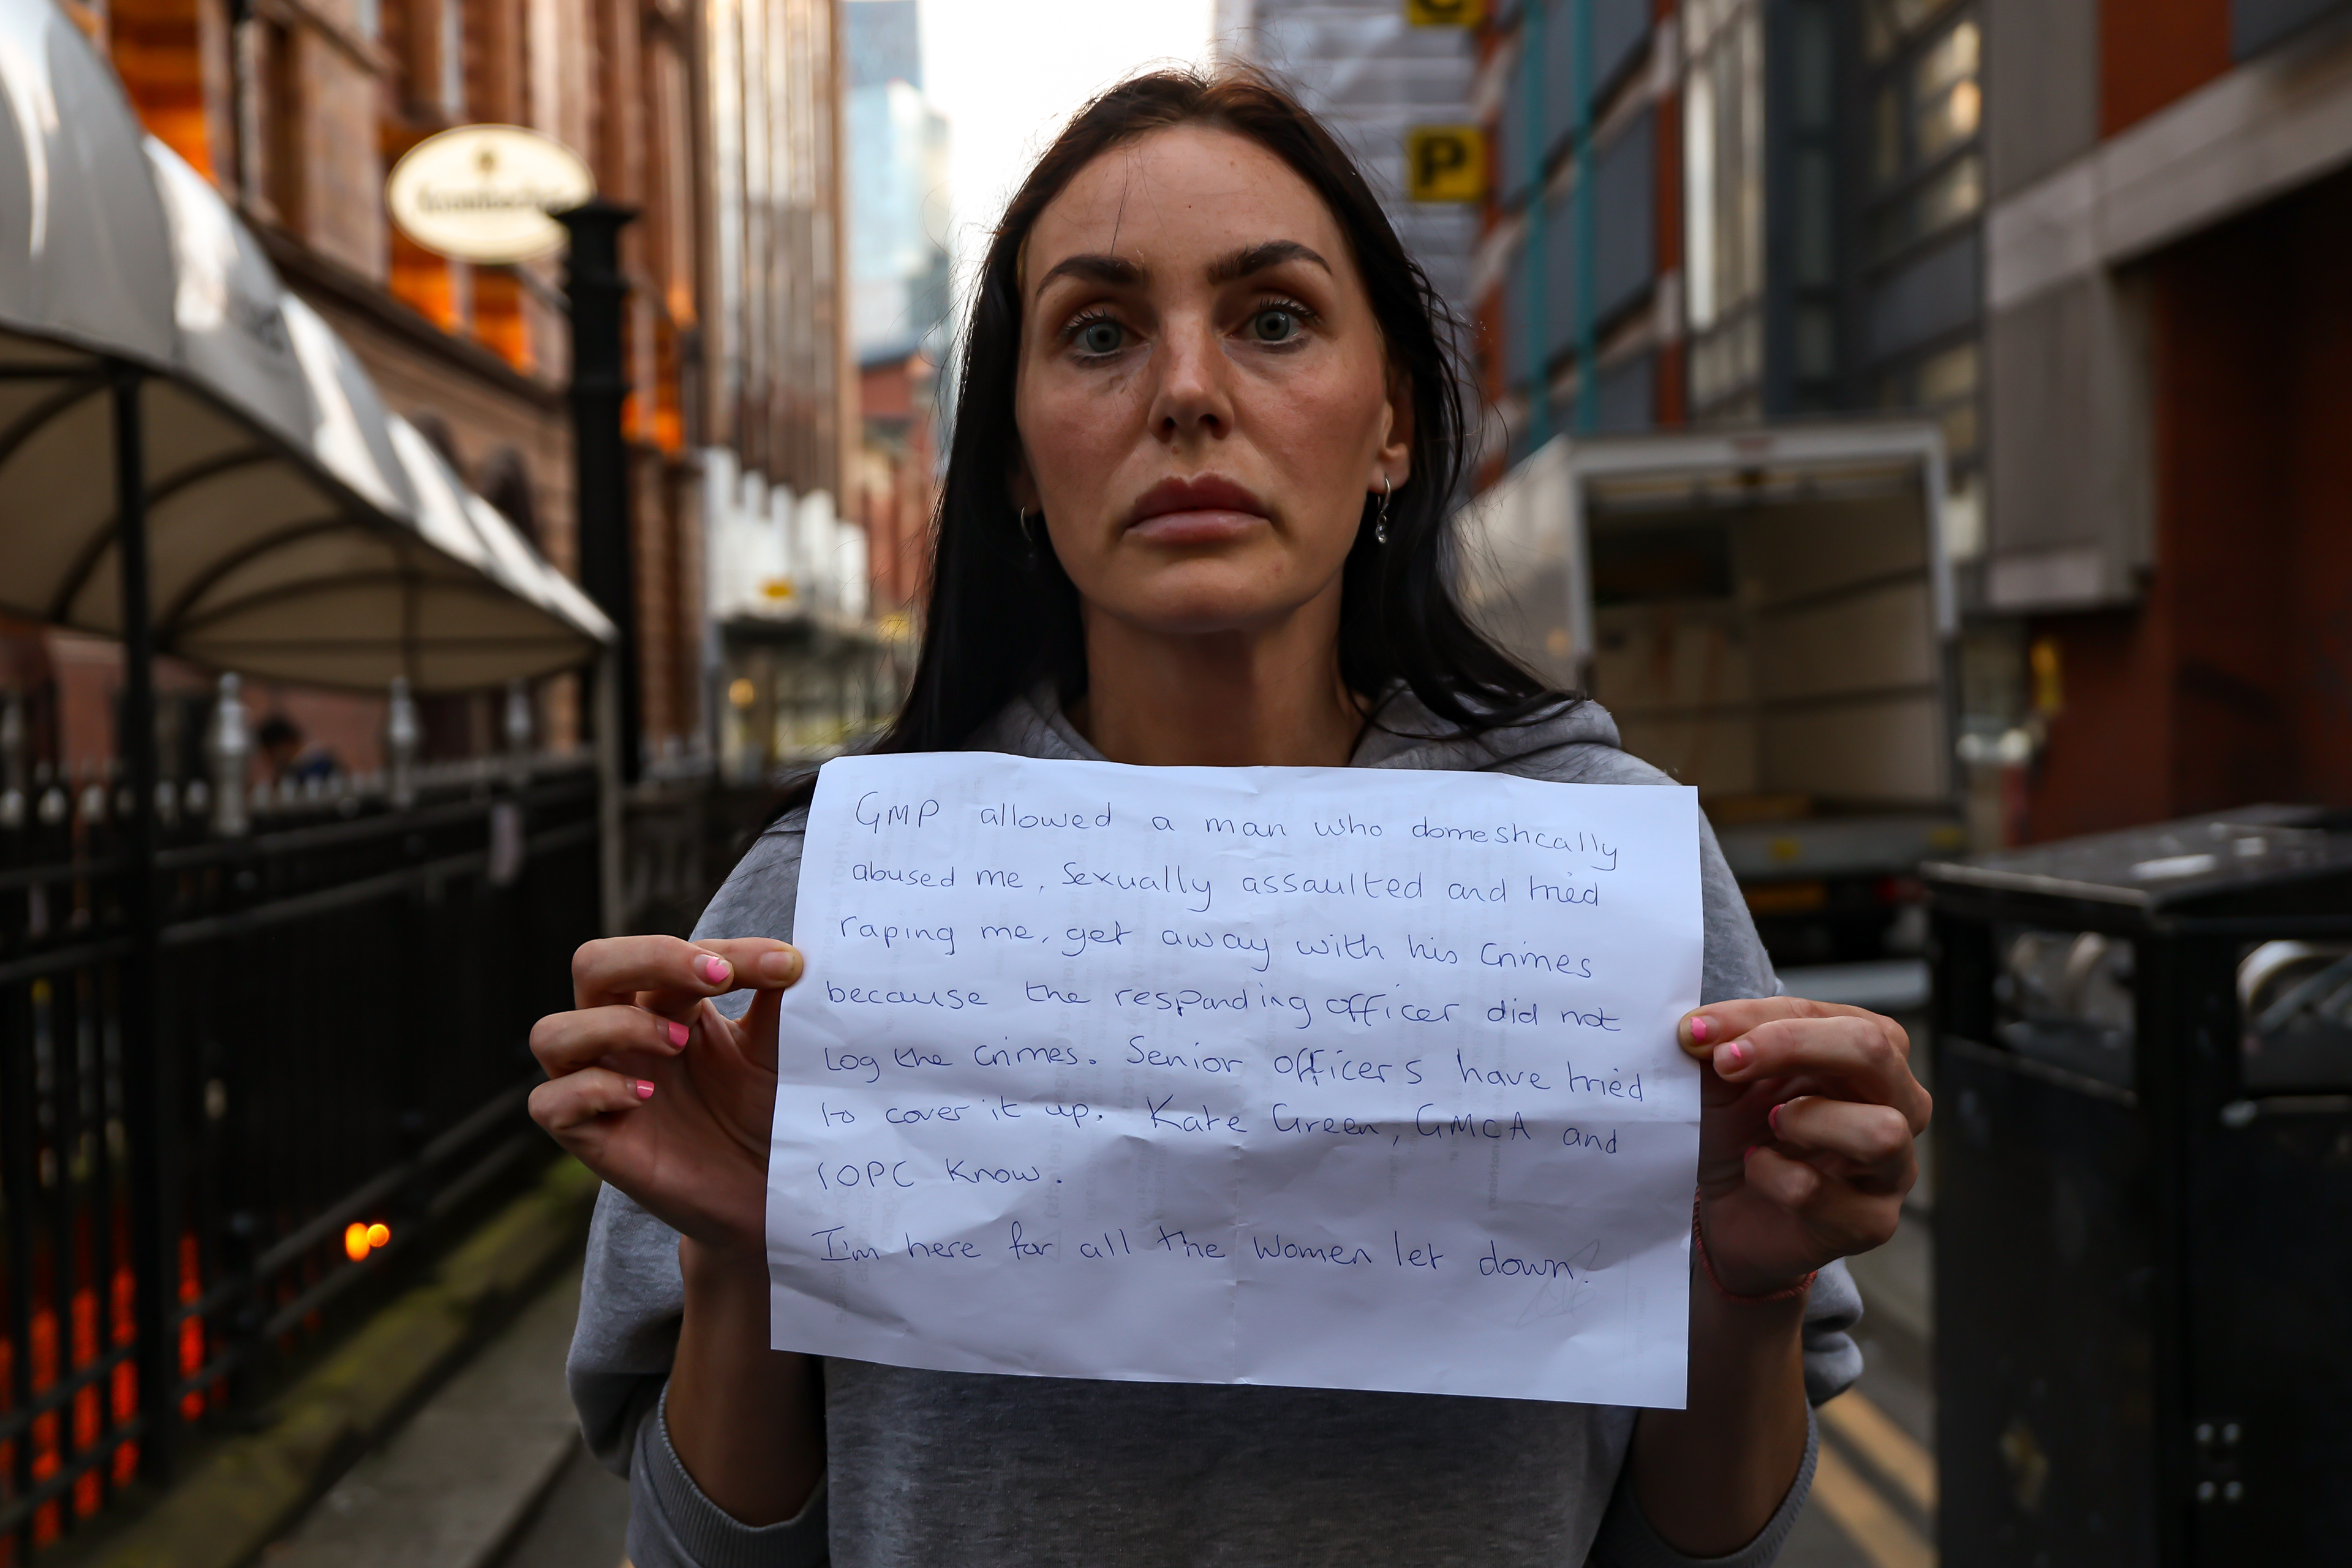 C
P
GMP allowed a man who domestically
abused me, Sexually assaulted and tried
raping me, get away with his crimes
because the responding officer did not
log the crimes. Senior officers have tried
to cover it up. Kate Green, GMCA and
IOPC know.
I'm here for all the women let down.